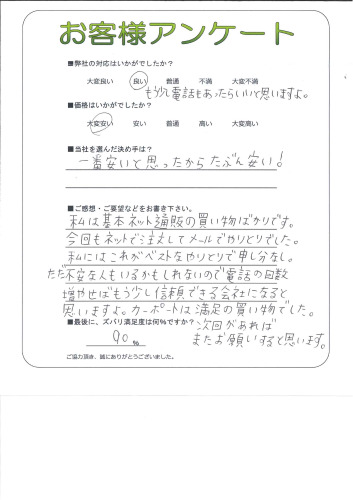 お客様アンケート
■弊社の対応はいかがでしたか？
大変良い 良い 普通 不満 大変不満
もう少し電話もあったらいいと思いますよ。
■価格はいかがでしたか？
大変安い 安い 普通 高い 大変高い
■当社を選んだ決め手は？
一番安いと思ったからたぶん安い！
■ご感想・ご要望などをお書き下さい。
私は基本ネット通販の買い物ばかりです。
今回もネットで注文してメールでやりとりでした。
私にはこれがベストなやりとりで申し分なし。
ただ不安な人もいるかもしれないので電話の回数
増やせばもう少し信頼できる会社になると
思いますよ。カーポートは満足の買い物でした。
■最後に、ズバリ満足度は何％ですか？
次回があれば
90％
またお願いすると思います。
ご協力頂き、誠にありがとうございました。